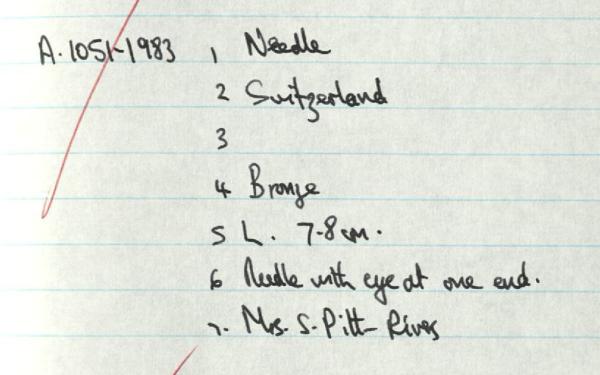 A.1051-1983 1 Needle
2 Switzerland
3
4 Bronze
5 L. 7.8 cm.
6 Needle with eye at one end.
7. Mrs. S. Pitt-Rivers